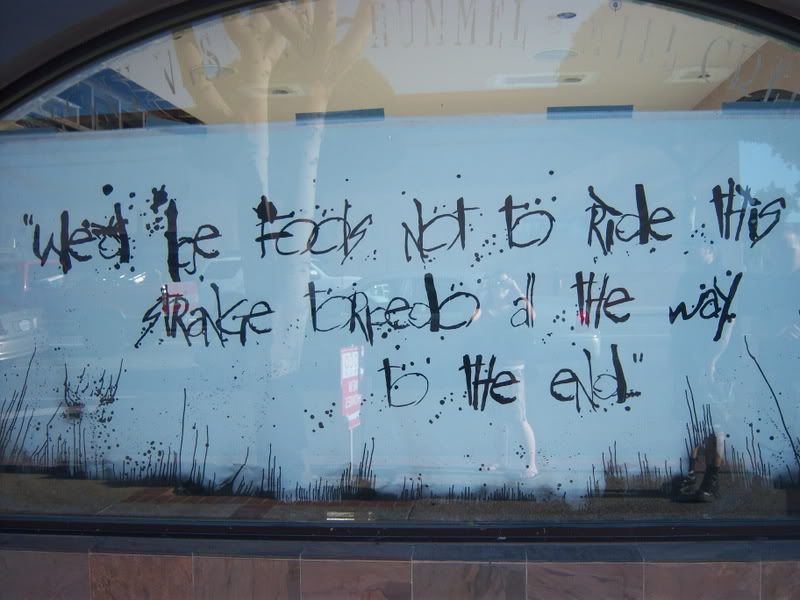 "we'd be Fools Not to Ride this
stRaNge toRpedo all the way
to the eNd."